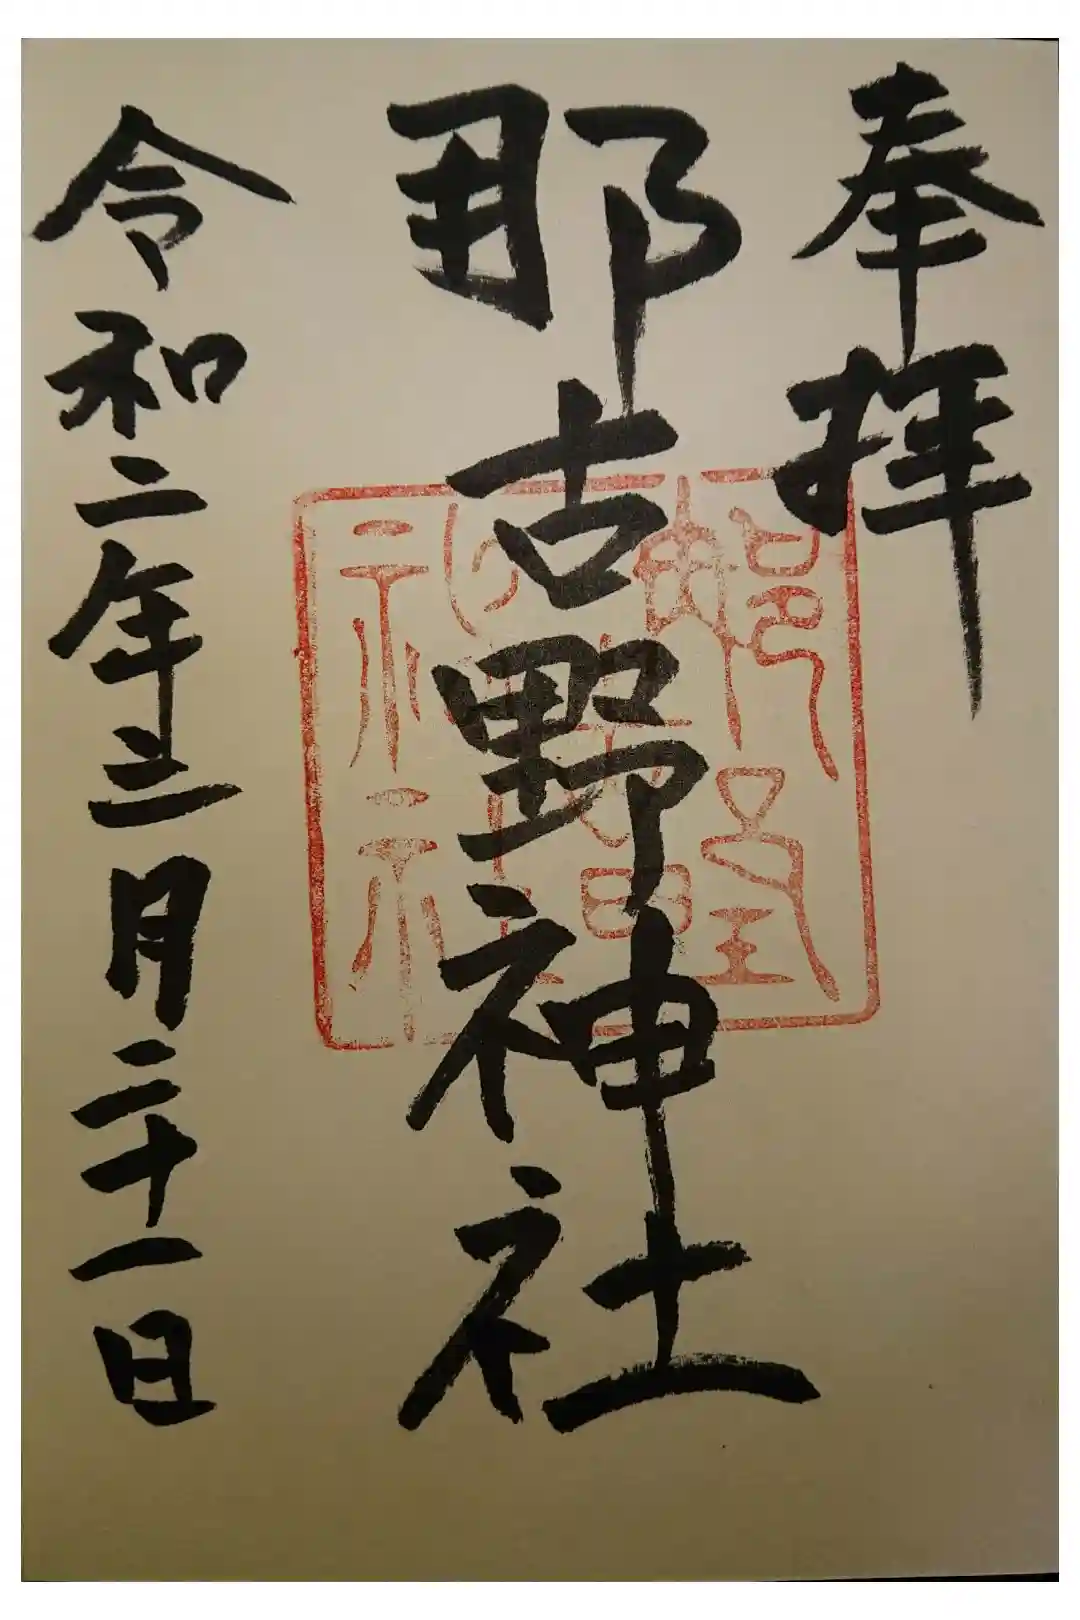 奉拝
那古野神社
令和二年三月二十一日